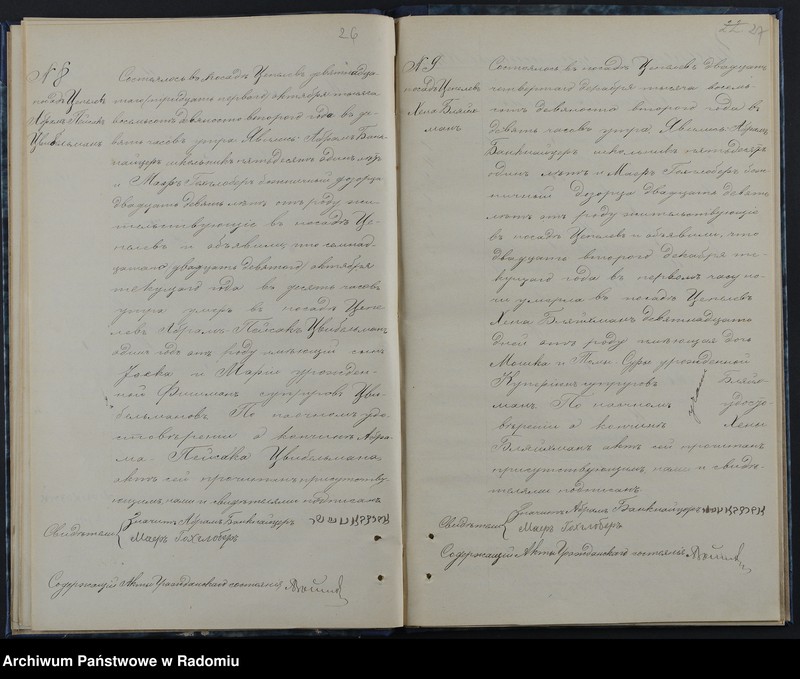 26
N 8
посадъ Цепелевъ
Абрамъ Пейсакъ
Цвибельманъ
Состоялось въ посадѣ Цепелевѣ девятнадца-
таго/тридцать перваго октября тысяча
восемьсотъ девяносто второго года въ де-
вять часовъ утра. Явились: Абрамъ Банк-
найцеръ школьникъ пятидесяти одинъ лѣтъ
и Маеръ Гохлоберъ больничной дозорца
двадцать девять лѣтъ отъ роду жи-
тельствующіе въ посадѣ Це-
пелевѣ и объявили, что семнад-
цатаго/двадцать девятого октября
текущаго года въ десять часовъ
утра умеръ въ посадѣ Цепе-
левѣ Абрамъ-Пейсакъ Цвибельманъ
одинъ годъ отъ роду имѣющій сынъ
Іоска и Маріи урожден-
ной Фишманъ супруговъ Цви-
бельмановъ. По наочномъ удо-
стовѣреніи о кончинѣ Абра-
ма-Пейсака Цвибельмана,
актъ сей прочитанъ присутству-
ющимъ, нами и свидѣтелями подписанъ
Свидѣтели
Значитъ Абрамъ Банкнайцеръ
Маеръ Гохлоберъ
Содержащій Акты Гражданскаго состоянія
27
N 9
посадъ Цепелевъ
Хена Бляйх-
манъ
Состоялось въ посадѣ Цепелевѣ двадцать
четвертаго декабря тысяча восемь-
сотъ девяноста второго года въ
девять часовъ утра. Явились: Абрамъ
Банкнайцеръ школьникъ пятидесяти
одинъ лѣтъ и Маеръ Гохлоберъ боль-
ничной дозорца двадцать девять
лѣтъ отъ роду жительствующіе
въ посадѣ Цепелевѣ и объявили, что
двадцать второго декабря те-
кущаго года въ первомъ часу но-
чи умерла въ посадѣ Цепелевѣ
Хена Бляйхманъ девятнадцать
дней отъ роду имѣющая дочь
Мошка и Песы-Суры урожденной
супруговъ Бляйх-
манъ. По наочномъ удосто-
вѣреніи о кончинѣ Хены
Бляйхманъ актъ сей прочитанъ
присутствующимъ, нами и свидѣ-
телями подписанъ.
Свидѣтели
Значитъ Абрамъ Банкнайцеръ
Маеръ Гохлоберъ
Содержащій Акты Гражданскаго состоянія
Archiwum Państwowe w Radomiu